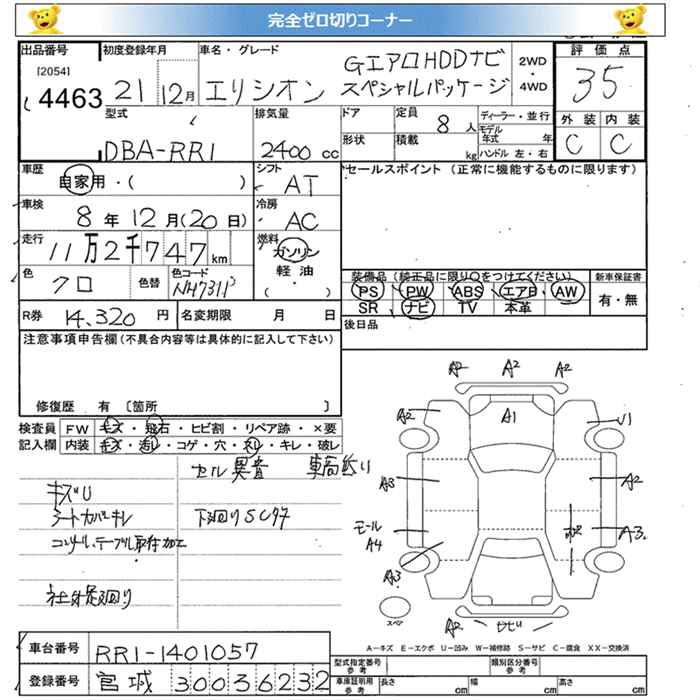 完全ゼロ切りコーナー
出品番号 初度登録年月 車名・グレード 評価点
[2054] 4463 21 12月 エリシオン GエアロHDDナビ スペシャルパッケージ 2WD・4WD 35
型式 排気量 ドア 定員 8人 ディーラー・並行 外装 内装
DBA-RR1 2400 cc 形状 積載 kg モデル年式 年 ハンドル 左・右 C C
車歴 自家用・( ) シフト AT セールスポイント (正常に機能するものに限ります)
車検 8年12月(20日) 冷房 AC
走行 11万2千747km 燃料 ガソリン 軽油 ・ ( )
色 クロ 色替 色コード NH731P 装備品 (純正品に限り〇をつけてください) 新車保証書
PS PW ABS エアB AW 有・無
SR ナビ TV 本革
R券 14,320円 名変期限 月 日 後日品
注意事項申告欄(不具合内容等は具体的に記入して下さい)
修復歴 有 〔箇所 〕
検査員 FW キズ・飛石・ヒビ割・リペア跡・×要
記入欄 内装 キズ・汚レ・コゲ・穴・スリ・キレ・破レ
セル異音
キズU
シートカバーキレ 下廻りSC47
取付加工
A2 A2 A2
A2 A1 U1
A3 A2
モール A4 A3
A3
A2
スペア
A―キズ E―エクボ U―凹み W―補修跡 S―サビ C―腐食 XX―交換済
車台番号 RR1-1401057
登録番号 宮城 300 36232
型式指定番号 参考 類別区分番号 参考
車庫証明用 参考 長さ cm 幅 cm 高さ cm